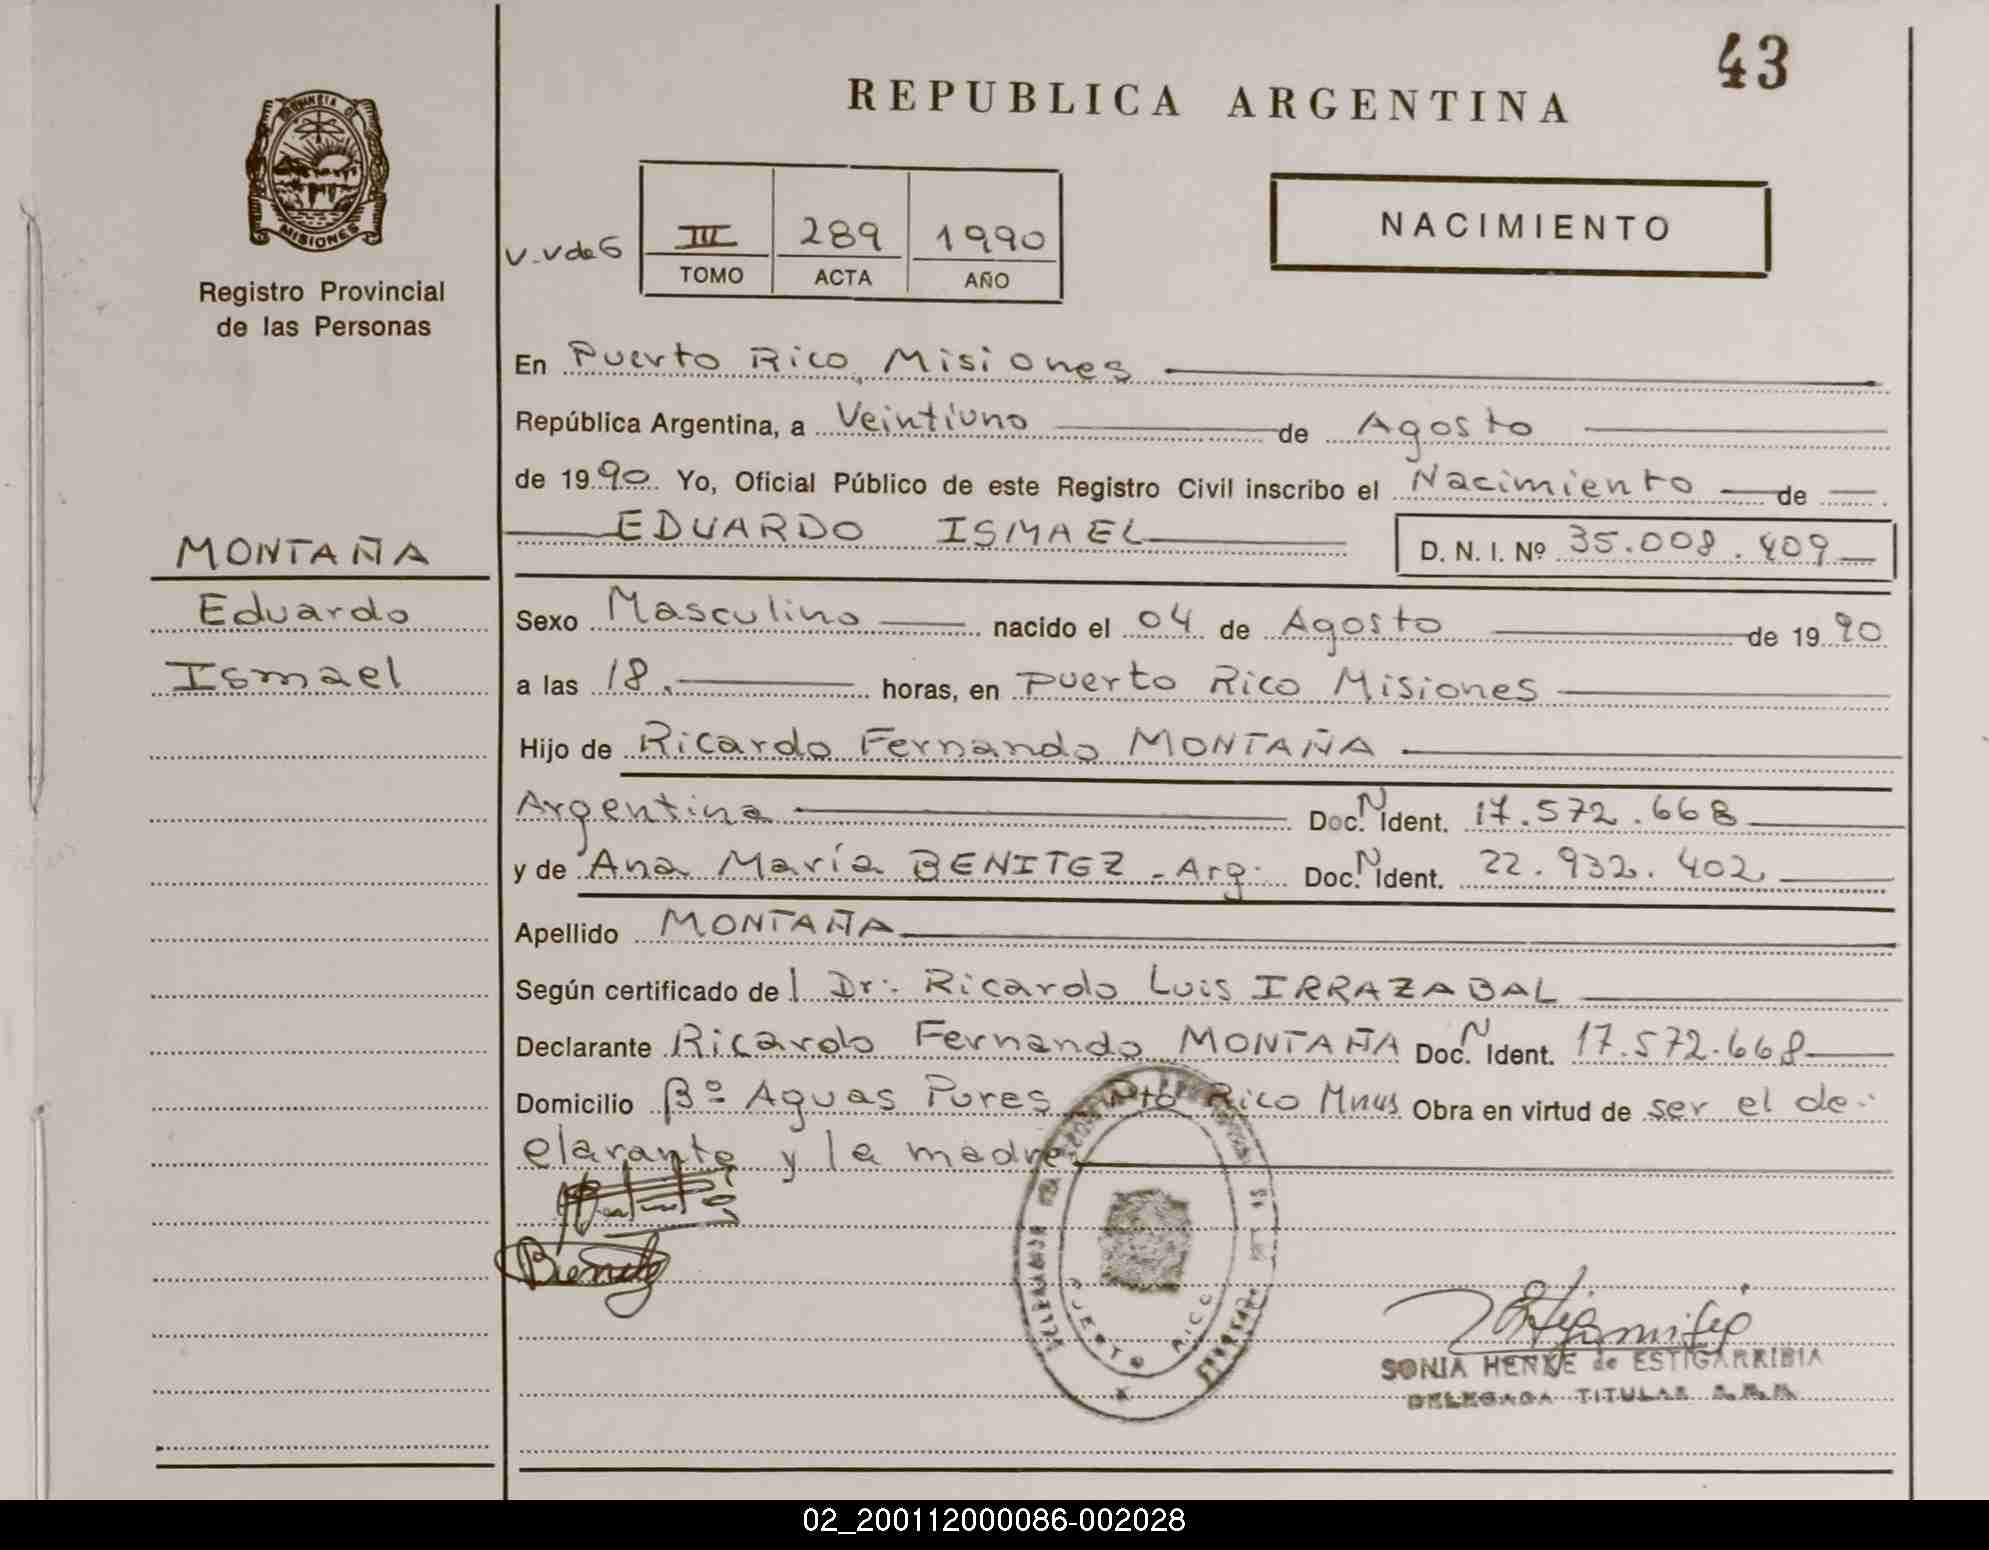 43
REPUBLICA ARGENTINA
PROVINCIA DE
MISIONES
Registro Provincial
de las Personas
NACIMIENTO
V.Vde6
III 289 1990
TOMO ACTA AÑO
En Puerto Rico, Misiones
República Argentina, a Veintiuno de Agosto
de 1990 Yo, Oficial Público de este Registro Civil inscribo el Nacimiento de
EDUARDO ISMAEL D. N. I. Nº 35.008.409
MONTAÑA
Eduardo
Ismael
Sexo Masculino nacido el 04 de Agosto de 1990
a las 18. horas, en Puerto Rico Misiones
Hijo de Ricardo Fernando MONTAÑA
Argentina Doc. N. Ident. 17.572.668
y de Ana María BENITEZ - Arg. Doc. N. Ident. 22.932.402
Apellido MONTAÑA
Según certificado del Dr. Ricardo Luis IRRAZABAL
Declarante Ricardo Fernando MONTAÑA Doc. N. Ident. 17.572.668
Domicilio Bº Aguas Pures Pto Rico Mnes Obra en virtud de ser el de-
clarante y la madre.
PUERTO RICO
SONIA HENKE de ESTIGARRIBIA
DELEGADA TITULAR
02_200112000086-002028